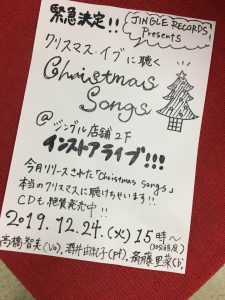 緊急決定!!
JINGLE RECORDS
Presents
クリスマス・イブに聴く
Christmas
Songs
@ジングル店舗2F
インストアライブ!!!
今月リリースされた「Christmas Songs」
本当のクリスマスに聴けちゃいます!!
CDも絶賛発売中!!
2019.12.24.(火)15時〜
(30分程度)
高橋智美(Vo),酒井由紀子(Pf),斎藤里菜(b)